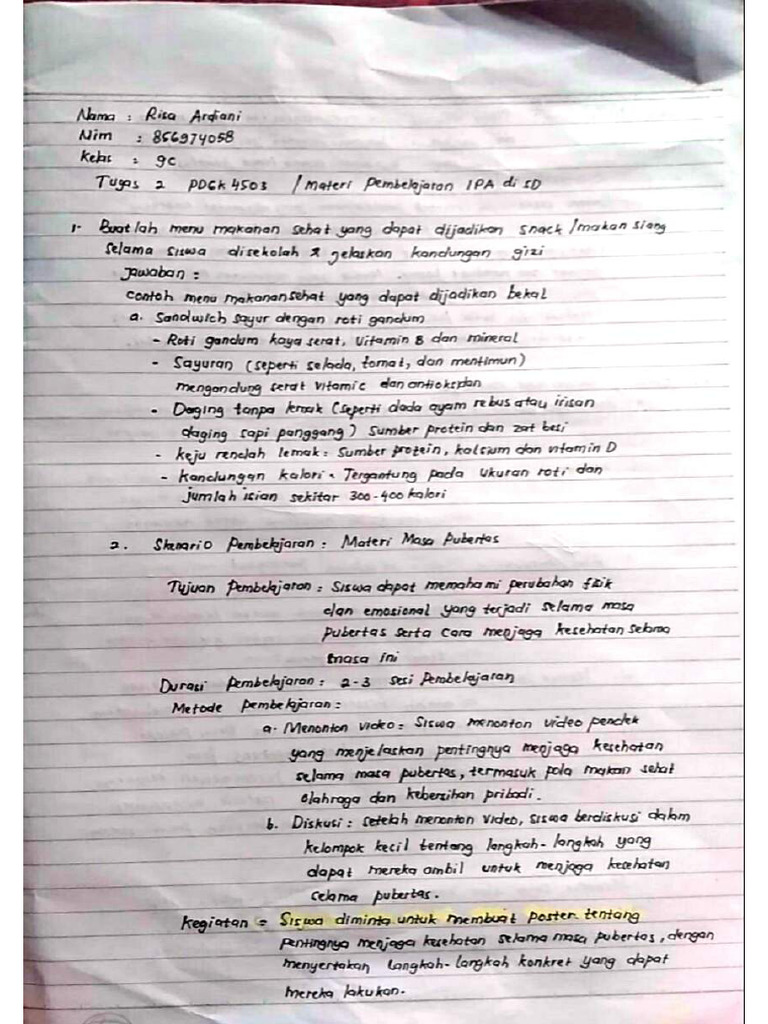 Nama : Risa Ardiani
Nim : 856974058
Kelas : 9C
Tugas 2 PDGK 4503 / Materi Pembelajaran IPA di SD
1. Buatlah menu makanan sehat yang dapat dijadikan snack / makan siang
selama siswa disekolah & jelaskan kandungan gizi
Jawaban :
contoh menu makanan sehat yang dapat dijadikan bekal
a. Sandwich sayur dengan roti gandum
- Roti gandum kaya serat, Vitamin B dan mineral
- Sayuran (seperti selada, tomat, dan mentimun)
mengandung serat vitamic dan antioksidan
- Daging tanpa lemak (seperti dada ayam rebus atau irisan
daging sapi panggang) Sumber protein dan zat besi
- Keju rendah lemak : Sumber protein, kalsium dan vitamin D
- Kandungan kalori : Tergantung pada ukuran roti dan
jumlah isian sekitar 300-400 kalori
2. Skenario Pembelajaran : Materi Masa Pubertas
Tujuan Pembelajaran : Siswa dapat memahami perubahan fisik
dan emosional yang terjadi selama masa
pubertas serta cara menjaga kesehatan selama
masa ini
Durasi Pembelajaran : 2-3 sesi Pembelajaran
Metode Pembelajaran :
a. Menonton video : Siswa menonton video pendek
yang menjelaskan pentingnya menjaga kesehatan
selama masa pubertas, termasuk pola makan sehat
olahraga dan kebersihan pribadi.
b. Diskusi : setelah menonton video, siswa berdiskusi dalam
kelompok kecil tentang langkah-langkah yang
dapat mereka ambil untuk menjaga kesehatan
selama pubertas.
Kegiatan = Siswa diminta untuk membuat poster tentang
pentingnya menjaga kesehatan selama masa pubertas, dengan
menyertakan langkah-langkah konkret yang dapat
mereka lakukan.